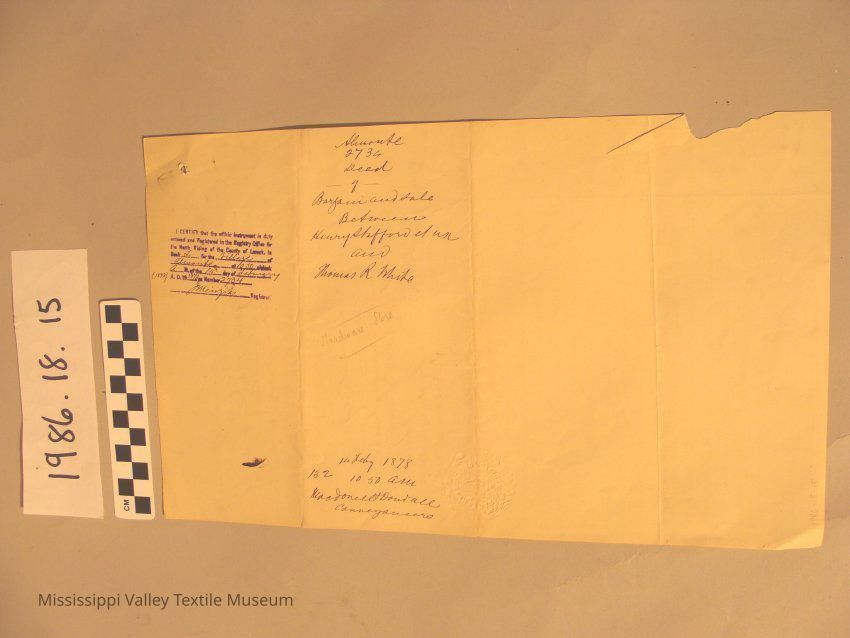 1986.18.15
CM
I CERTIFY that the within Instrument is duly
entered and Registered in the Registry Office for
the North Riding of the County of Lanark, in
Book for the Village of
Almonte at o'clock
A M. of the 14 day of February
(1878) A. D. 18 as Number 2734
Registrar.
Almonte
2734
Deed
of
Bargain and sale
Between
Henry Stafford et ux
and
Thomas R White
Hardware Store
14 Feby 1878
132 10 50 am
Conveyancers
Mississippi Valley Textile Museum